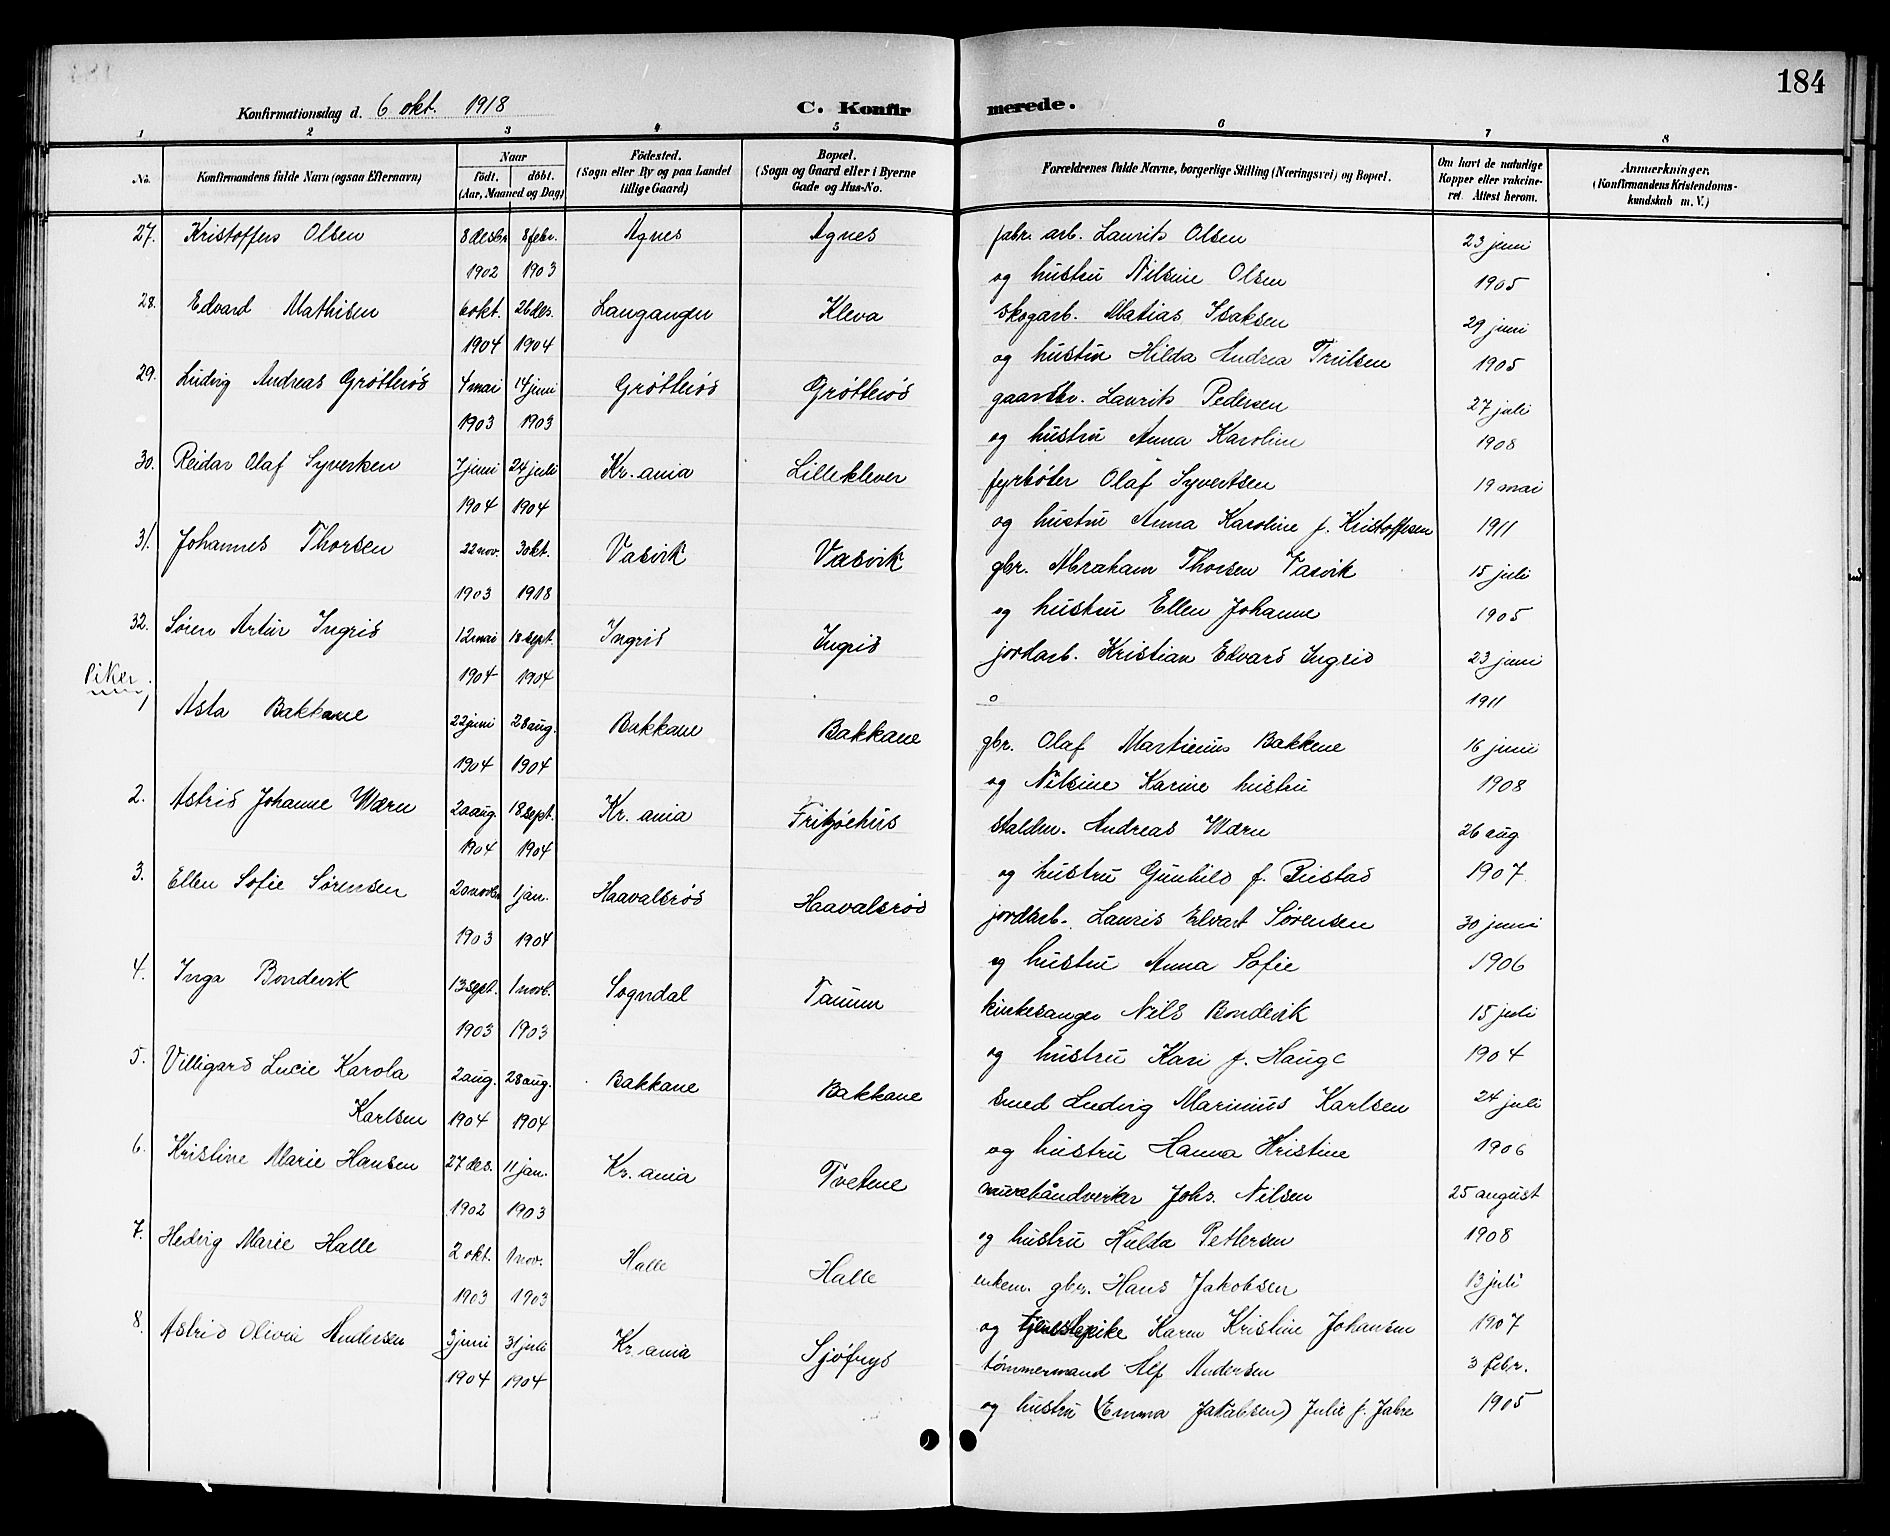 184
Konfirmationsdag d. 6 okt. 1918
C. Konfirmerede.
1 2 3 4 5 6 7 8
No. Konfirmandens fulde Navn (ogsaa Efternavn) Naar födt. döbt. (Aar, Maaned og Dag) Födested. (Sogn eller By og paa Landet tillige Gaard) Bopæl. (Sogn og Gaard eller i Byerne Gade og Hus-No. Forældrenes fulde Navne, borgerlige Stilling (Næringsvei) og Bopæl. Om havt de naturlige Kopper eller vakcineret. Attest herom. Anmærkninger. (Konfirmandens Kristendomskundskab m. V.)
27. Kristoffers Olsen 8 desbr 8 febr. Agnes Agnes fabr. arb. Laurits Olsen 23 juni
1902 1903 og hustru Nilsine Olsen 1905
28. Edvard Mathisen 6 okt. 26 des. Langangen Kleva skogarb. Matias Isaksen 29 juni
1904 1904 og hustru Hilda Andrea Trulsen 1905
29. Ludvig Andreas Grøtterød 4 mai 14 juni Grøtterød Grøtterød gaardbr. Laurits Pedersen 27 juli
1903 1903 og hustru Anna Karoline 1908
30. Reidar Olaf Syvertsen 7 juni 24 juli Kr.ania Lilleklever fyrbøter Olaf Syvertsen 19 mai
1904 1904 og hustru Anna Karoline f. Kristoffersen 1911
31. Johannes Thorsen 22 nov. 3 okt. Vasvik Vasvik gbr. Abraham Thorsen Vasvik 15 juli
1903 1918 og hustru Ellen Johanne 1905
32. Søren Artur Ingrid 12 mai 18 sept. Ingrid Ingrid jordarb. Kristian Edvard Ingrid 23 juni
1904 1904 o 1911
Piker
1 Asta Bakkane 22 juni 28 aug. Bakkane Bakkane gbr. Olaf Martinius Bakkene 16 juni
1904 1904 og Nilsine Karine hustru 1908
2. Astrid Johanne Wærn 20 aug. 18 sept. Kr.ania Fritzøehus staldm. Andreas Wærn 26 aug
1904 1904 og hustru Gunhild f. 1907
3. Ellen Sofie Sørensen 20 novbr 1 jan. Haavalsrød Haavalsrød jordarb. Lauris Edvart Sørensen 30 juni
1903 1904 og hustru Anna Sofie 1906
4. Inga Bondevik 13 sept. 1 novb. Sogndal Tanum kirkesanger Nils Bondevik 15 juli
1903 1903 og hustru Kari f. Hauge 1904
5. Villigard Lucie Karola 2 aug. 28 aug. Bakkane Bakkane smed Ludvig Marinius Karlsen 24 juli
Karlsen 1904 1904 og hustru Hanna Kristine 1906
6. Kristine Marie Hansen 27 des. 11 jan. Kr.ania Tvetene murehåndverker Johs. Nilsen 25 august
1902 1903 og hustru Hulda Pettersen 1908
7. Hedvig Marie Halle 2 okt. 1 nov. Halle Halle enkem. gbr. Hans Jakobsen 13 juli
1903 1903 og tjenestepike Karen Kristine Johansen 1907
8. Astrid Olivie Andersen 3 juni 31 juli Kr.ania Sjøfryd tømmermand Alf Andersen 3 febr.
1904 1904 og hustru (Emma Jakobsen) Julie f. Jahre 1905